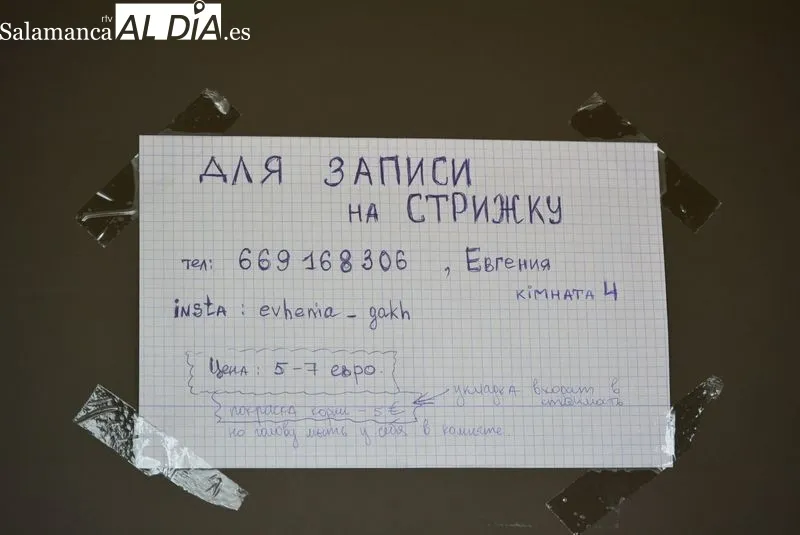 rtv
Salamanca AL DÍA.es
ДЛЯ ЗАПИСИ
НА СТРИЖКУ
тел: 669 168 306 , Евгения
кімната 4
insta : evhenia_gakh
Цена : 5-7 евро.
укладка входит в
стоимость
покраска корни - 5 €
но голову мыть у себя в комнате.